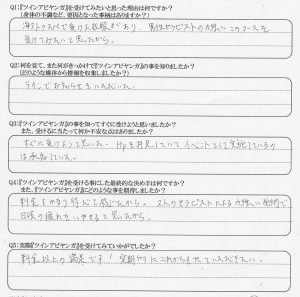 Q1:『ツインアビヤンガ』を受けてみたいと思った理由は何ですか?
(身体の不調など、要因となった事柄はありますか?)
海外スパで受けた経験があり、男性セラピストの力強いこのコースを
受けてみたいと思ったから。
Q2:何を見て、また何がきっかけで『ツインアビヤンガ』の事を知りましたか?
(どのような媒体から情報を収集しましたか?)
ラインでお知らせをいただいた。
Q3:『ツインアビヤンガ』の事を知ってすぐに受けようと思いましたか?
また、受けるに当たって何か不安な点はありましたか?
すぐに受けようと思った。Hpを拝見していてイベントとして実施しているの
は承知していた。
Q4:『ツインアビヤンガ』を受ける事にした最終的な決め手は何ですか?
また、『ツインアビヤンガ』にどのような事を期待しましたか?
料金もかなりお得に感じたから。2人のセラピストによる力強い施術で
日頃の疲れを
と思ったから。
Q5:実際『ツインアビヤンガ』を受けてみていかがでしたか?
料金以上の満足です!定期的にこれからも
いただきたい。